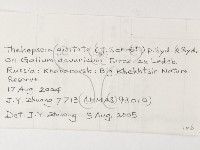 Thekopsora (J. Schröt.) P. Syd. & Syd.
on Galium davuricum Turcz. ex Ledeb.
Russia: Khabarovsk: Big Khekhtsir Nature
Reserve
17 Aug. 2004
J.Y. Zhuang 7713 (HMAS) 93010)
Det. J.Y. Zhuang 3 Aug. 2005